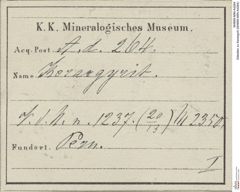 K. K. Mineralogisches Museum.
Acq. Post. A. d. 264.
Name Kerargyrit.
1237. (20/13)
Fundort. Peru.
I